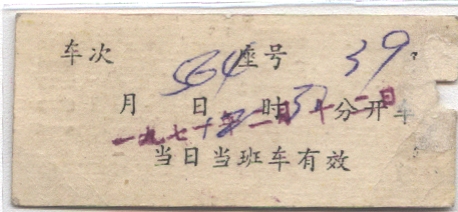 车次 564 座号 39
月 日 时 分开车
一九七 年二月十二日
当日当班车有效